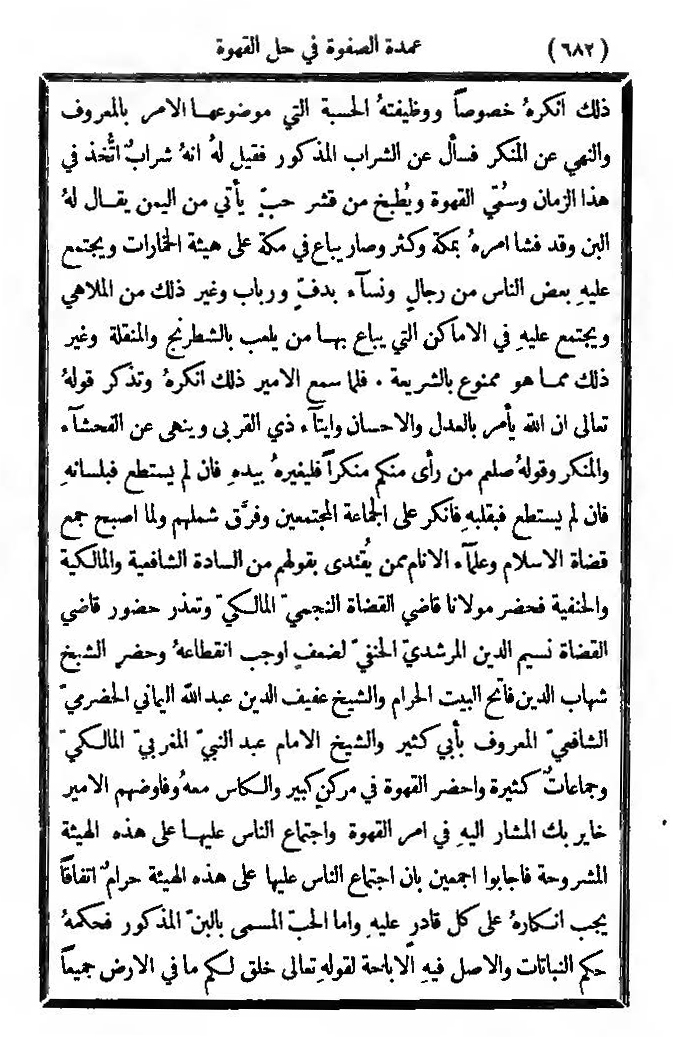 (٦٨٢) عمدة الصفوة في حل القهوة
ذلك انكرهُ خصوصاً ووظيفتهُ الحسبة التي موضوعها الامر بالمعروف
والنهي عن المنكر فسأل عن الشراب المذكور فقيل لهُ انهُ شرابٌ اتُّخذ في
هذا الزمان وسُمّي القهوة ويُطبخ من قشر حبٍّ يأتي من اليمن يقال لهُ
البن وقد فشا امرهُ بمكة وكثر وصار يباع في مكة على هيئة الخمارات ويجتمع
عليهِ بعض الناس من رجالٍ ونسآء بدفٍّ ورباب وغير ذلك من الملاهي
ويجتمع عليهِ في الاماكن التي يباع بها من يلعب بالشطرنج والمنقلة وغير
ذلك مما هو ممنوع بالشريعة ٠ فلما سمع الامير ذلك انكرهُ وتذكر قولهُ
تعالى ان الله يأمر بالعدل والاحسان وايتآء ذي القربى وينهى عن الفحشآء
والمنكر وقولهُ صلعم من رأى منكم منكراً فليغيرهُ بيدهِ فان لم يستطع فبلسانهِ
فان لم يستطع فبقلبهِ فانكر على الجماعة المجتمعين وفرَّق شملهم ولما اصبح جمع
قضاة الاسلام وعلمآء الانام ممن يُقتدى بقولهم من السادة الشافعية والمالكية
والحنفية فحضر مولانا قاضي القضاة النجمي المالكيّ وتعذر حضور قاضي
القضاة نسيم الدين المرشديّ الحنفيّ لضعفٍ اوجب انقطاعهُ وحضر الشيخ
شهاب الدين فاتح البيت الحرام والشيخ عفيف الدين عبد الله اليماني الحضرميّ
الشافعيّ المعروف بأبي كثير والشيخ الامام عبد النبيّ المغربيّ المالكيّ
وجماعاتٌ كثيرة واحضر القهوة في مركنٍ كبير والكاس معهُ وفاوضهم الامير
خاير بك المشار اليهِ في امر القهوة واجتماع الناس عليها على هذه الهيئة
المشروحة فاجابوا اجمعين بان اجتماع الناس عليها على هذه الهيئة حرامٌ اتفاقاً
يجب انكارهُ على كل قادرٍ عليهِ واما الحبّ المسمى بالبنّ المذكور فحكمهُ
حكم النباتات والاصل فيهِ الاباحة لقولهِ تعالى خلق لكم ما في الارض جميعاً